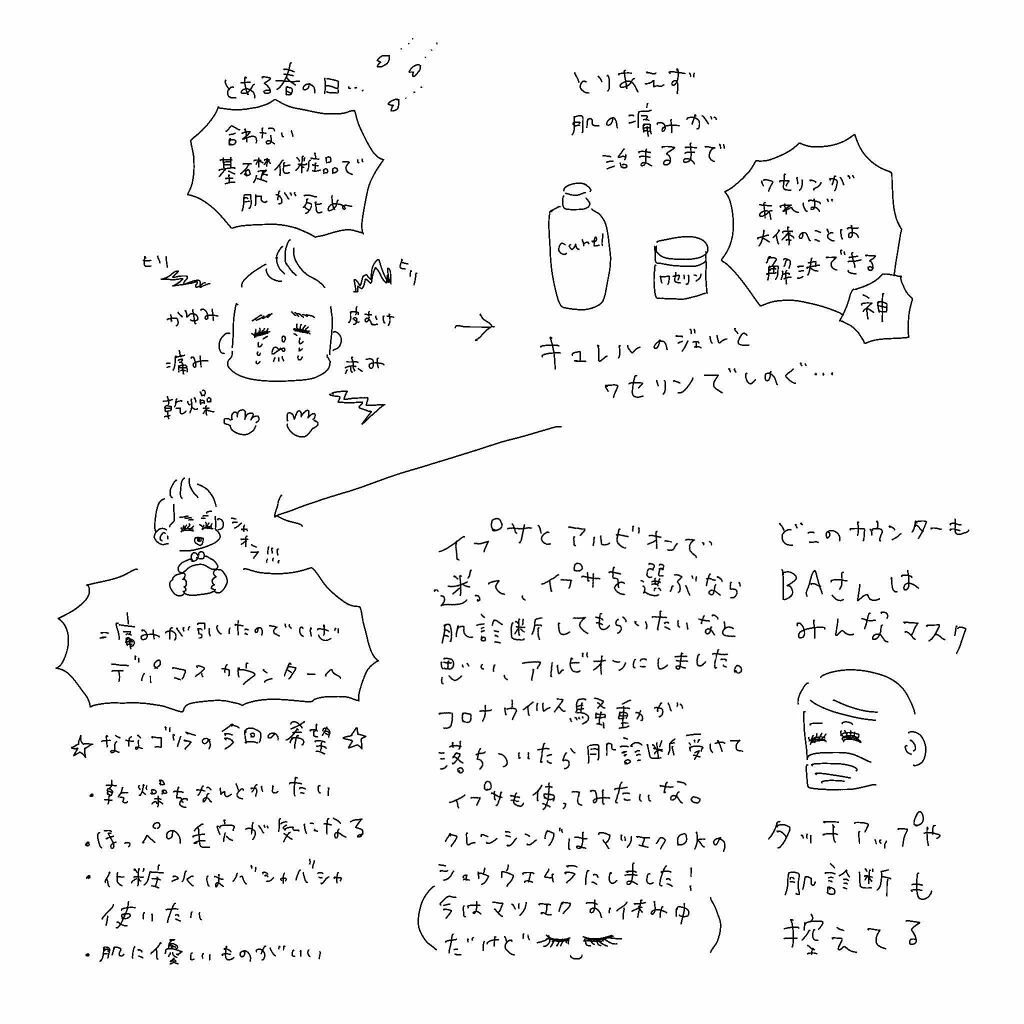 とある春の日…
合わない
基礎化粧品で
肌が死ぬ
ヒリ
ヒリ
かゆみ
皮むけ
痛み
赤み
乾燥
とりあえず
肌の痛みが
治まるまで
curel
ワセリン
ワセリンが
あれば
大体のことは
解決できる
神
キュレルのジェルと
ワセリンでしのぐ…
シャ
オラ!!!
痛みが引いたのでいざ
デパコスカウンターへ
☆ななゴリラの今回の希望☆
・乾燥をなんとかしたい
・ほっぺの毛穴が気になる
・化粧水はバシャバシャ
使いたい
・肌に優しいものがいい
イプサとアルビオンで
迷って、イプサを選ぶなら
肌診断してもらいたいなと
思い、アルビオンにしました。
コロナウイルス騒動が
落ちついたら肌診断受けて
イプサも使ってみたいな。
クレンジングはマツエクOKの
シュウウエムラにしました!
(今はマツエクお休み中
だけど)
どこのカウンターも
BAさんは
みんなマスク
タッチアップや
肌診断も
控えてる